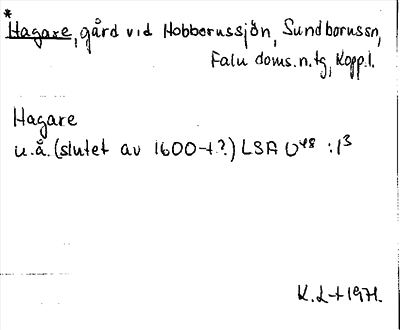 * Hagare, gård vid Hobborussjön, Sundborns sn,
Falu doms.n.tg, Kopp.l.
Hagare
u.å. (slutet av 1600-t?) LSA U48 : 1³
K. L-t 1971.